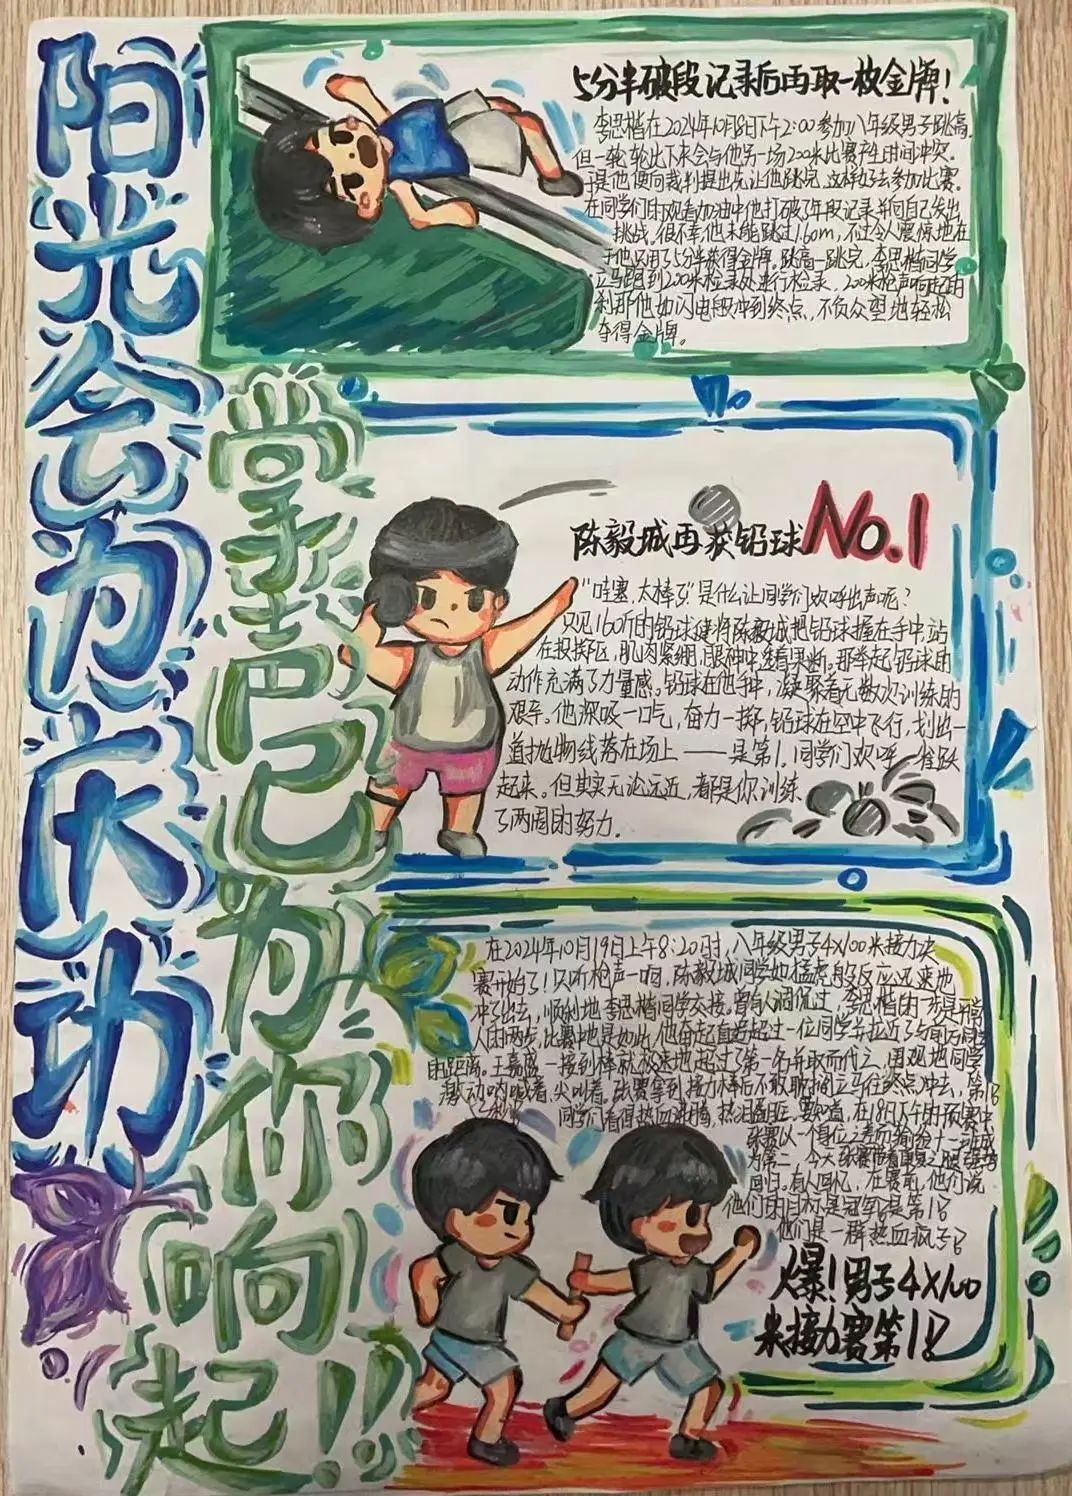 阳光会为庆功
掌声已为你响起!!
5分半破段记录后再取一枚金牌!
李思楷在2024年10月8日下午2:00参加八年级男子跳高,
但一轮轮比下来会与他另一场200米比赛产生时间冲突.
于是他便向裁判提出先让他跳完,这样好去参加比赛.
在同学们的观看加油中他打破了年段记录并向自己发出
挑战.很不幸他未能跳过1.60m,不过令人震惊地在
于他只用了5分半来得金牌.跳高一跳完,李思楷同学
立马跑到200米检录处进行检录,200米枪声响起的
刹那他如闪电般冲到终点,不负众望地轻松
夺得金牌。
陈毅城再获铅球No.1
"哇塞,太棒了"是什么让同学们欢呼出声呢?
只见160斤的铅球健将陈毅城把铅球握在手中,站
在投掷区,肌肉紧绷,眼神中透着果断。那举起铅球的
动作充满了力量感。铅球在他手中,凝聚着无数次训练的
艰辛。他深吸一口气,奋力一掷,铅球在空中飞行,划出一
道抛物线落在场上——是第1.同学们欢呼雀跃
起来.但其实无论远近,都是你训练
了两周的努力.
在2024年10月19日上午8:20时,八年级男子4X100米接力决
赛开始了!只听枪声一响,陈毅城同学如猛虎般反应迅速地
冲了出去,顺利地李思楷同学交接.曾有人调侃过,李思楷的一步是平常
人的两步,比赛中也是如此他奋起直追超过一位同学并拉近了与前方同学
的距离。王嘉盛一接到棒就极速地超过了第一名并取而代之,围观地同学
激动呐喊着,尖叫着。张赛拿到接力棒后不敢耽搁立马往终点冲去,第1!
同学们看得热血沸腾,热泪盈眶。要知道,在18日下午的预赛中
张赛以一个身位之差而输给十二班成
为第二,今天张赛带着
回归。有人回忆,在赛前,他们说
他们的目标是冠军是第1!
他们是一群热血疯子!
爆!男子4X100
米接力赛第1!